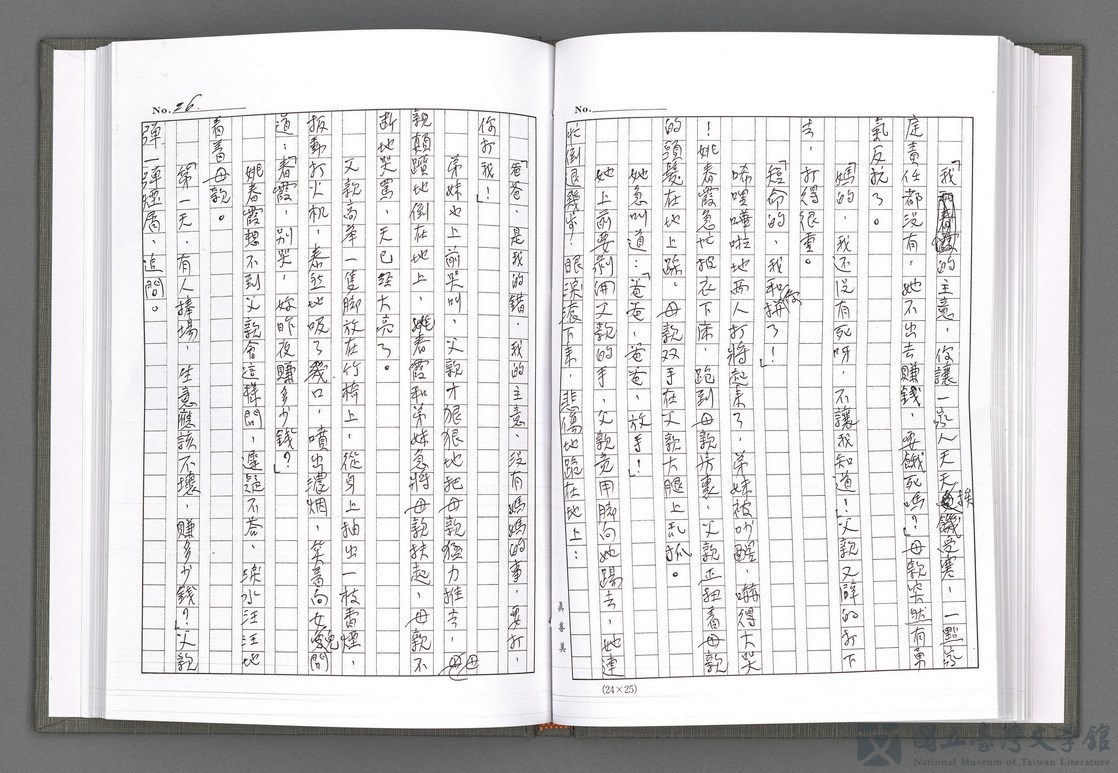 「我的主意，你讓一家人天天挨餓受寒，一點家
庭責任都沒有，她不出去賺錢，要餓死嗎？」母親突然有勇
氣反抗了。
「媽的，我还没有死呀，不讓我知道！」父親又辟的打下
去，打得很重。
「短命的，我和你拼了！」
唏哩嘩啦地两人打將起来了，弟妹被吵醒，嚇得大哭
！姚春霞急忙披衣下床，跑到母親房裏，父親正扭着母親
的頭髮在地上踩，母親双手在父親大腿上乱抓。
她急叫道：「爸爸，爸爸，放手！」
她上前要剥開父親的手，父親竟用脚向她踢去，她連
忙倒退幾步！眼淚滚下来，悲傷地跪在地上：
眞善美
(24×25)
No.
No. 26.
「爸爸，是我的錯，我的主意，没有媽媽的事，要打，
你打我！」
弟妹也上前哭叫，父親才狠狠地把母親猛力推去，母
親顛躓地倒在地上，姚春霞和弟妹急將母親扶起，母親不
断地哭罵，天已經大亮了。
父親高举一隻脚放在竹椅上，從身上抽出一枝香煙，
扳動打火机，泰然地吸了幾口，噴出濃烟，笑着向女兒問
道：「春霞，别哭，妳昨夜賺多少錢？」
姚春霞想不到父親會這樣問，遲疑不答，淚水汪汪地
看着母親。
「第一天，有人捧場，生意應該不壞，賺多少錢？」父親
彈一彈煙屑，追問。
國立臺灣文學館
National Museum of Taiwan Literature